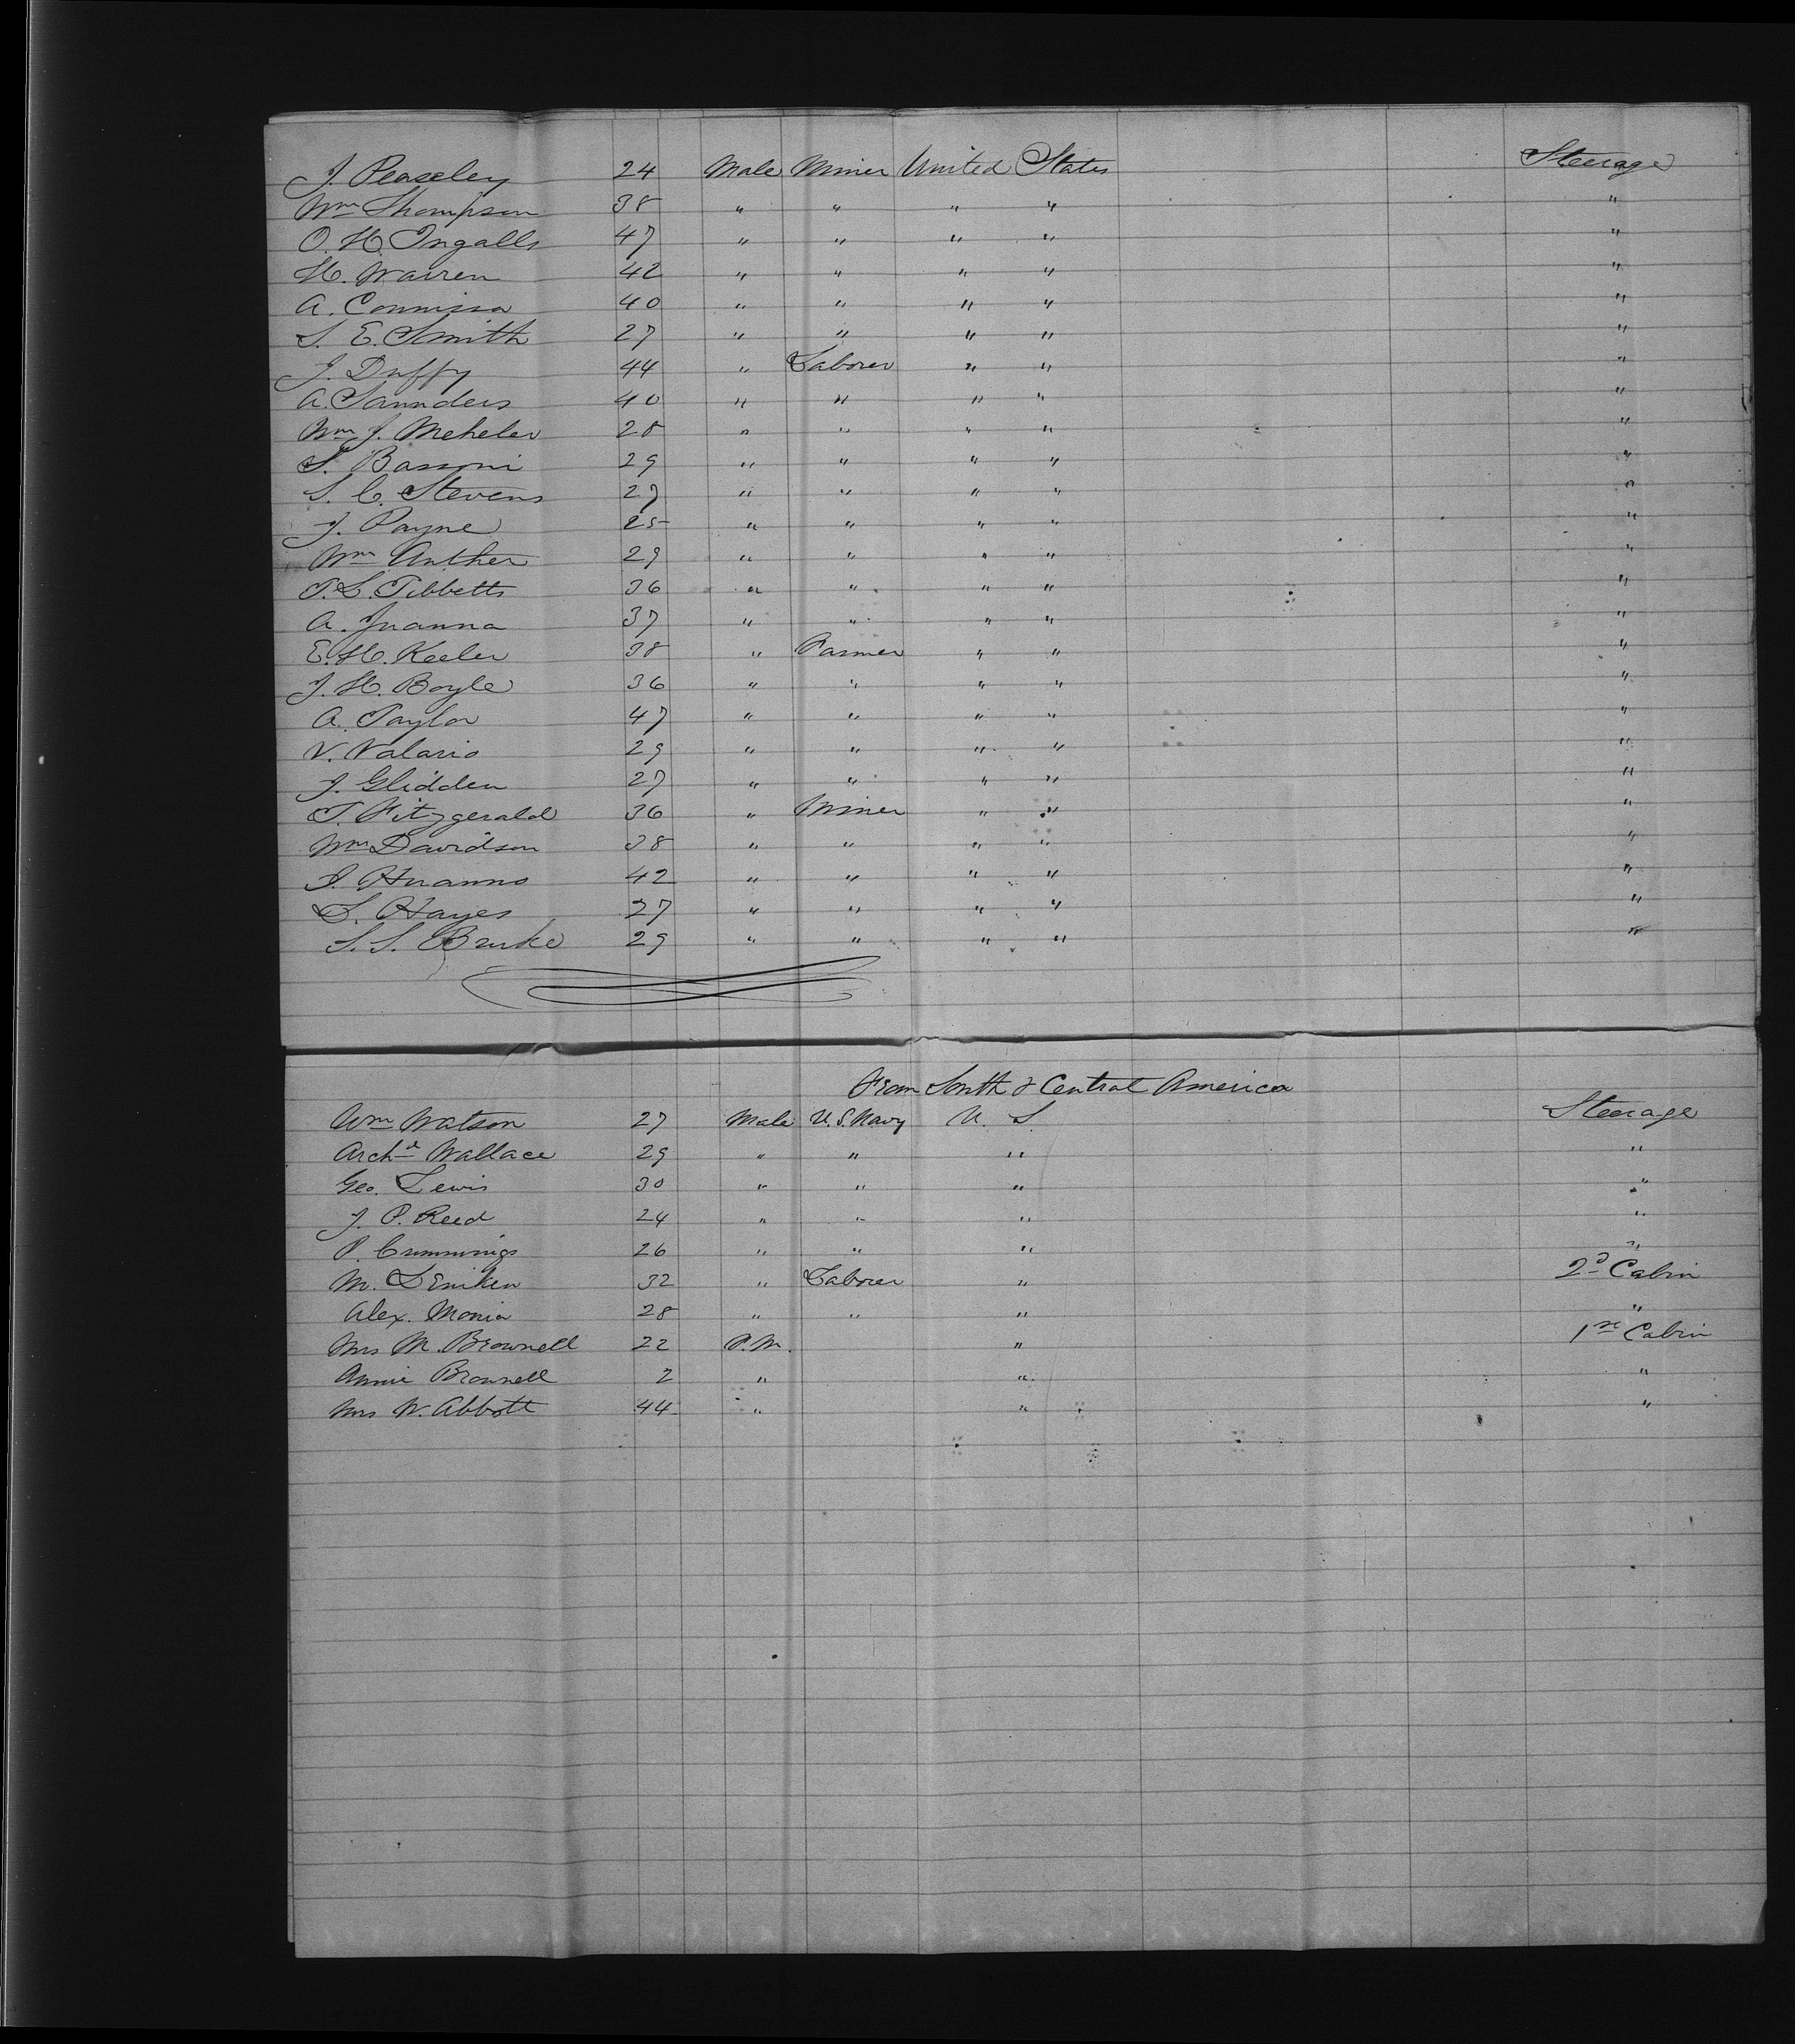 J. Peaseley 24 Male Miner United States Steerage
Wm Thompson 38 " " " " "
O. H. Ingalls 47 " " " " "
H. Warren 42 " " " " "
A. Connissa 40 " " " " "
S. E. Smith 27 " " " " "
J. Duffy 44 " Laborer " " "
A. Saunders 40 " " " " "
Wm J. Meheler 28 " " " " "
S. Bassoni 29 " " " " "
S. C. Stevens 27 " " " " "
J. Payne 25 " " " " "
Wm Anther 29 " " " " "
T. L. Tibbetts 36 " " " " "
A. Juanna 37 " " " " "
E. H. Keeler 38 " Farmer " " "
J. H. Boyle 36 " " " " "
A. Taylor 47 " " " " "
V. Valario 29 " " " " "
J. Glidden 27 " " " " "
T. Fitzgerald 36 " Miner " " "
Wm Davidson 38 " " " " "
J. Huanno 42 " " " " "
S. Hayes 27 " " " " "
S. S. Burke 29 " " " " "
From South & Central America
Wm Watson 27 Male U. S. Navy U. S. Steerage
Archd Wallace 29 " " " "
Geo. Lewis 30 " " " "
J. P. Reed 24 " " " "
P. Cummings 26 " " " "
M. 32 " Laborer " 2d Cabin
Alex. Monia 28 " " " "
Mrs M. Brownell 22 F.M. " 1st Cabin
Annie Brownell 2 " " "
Mrs W. Abbott 44 " " "